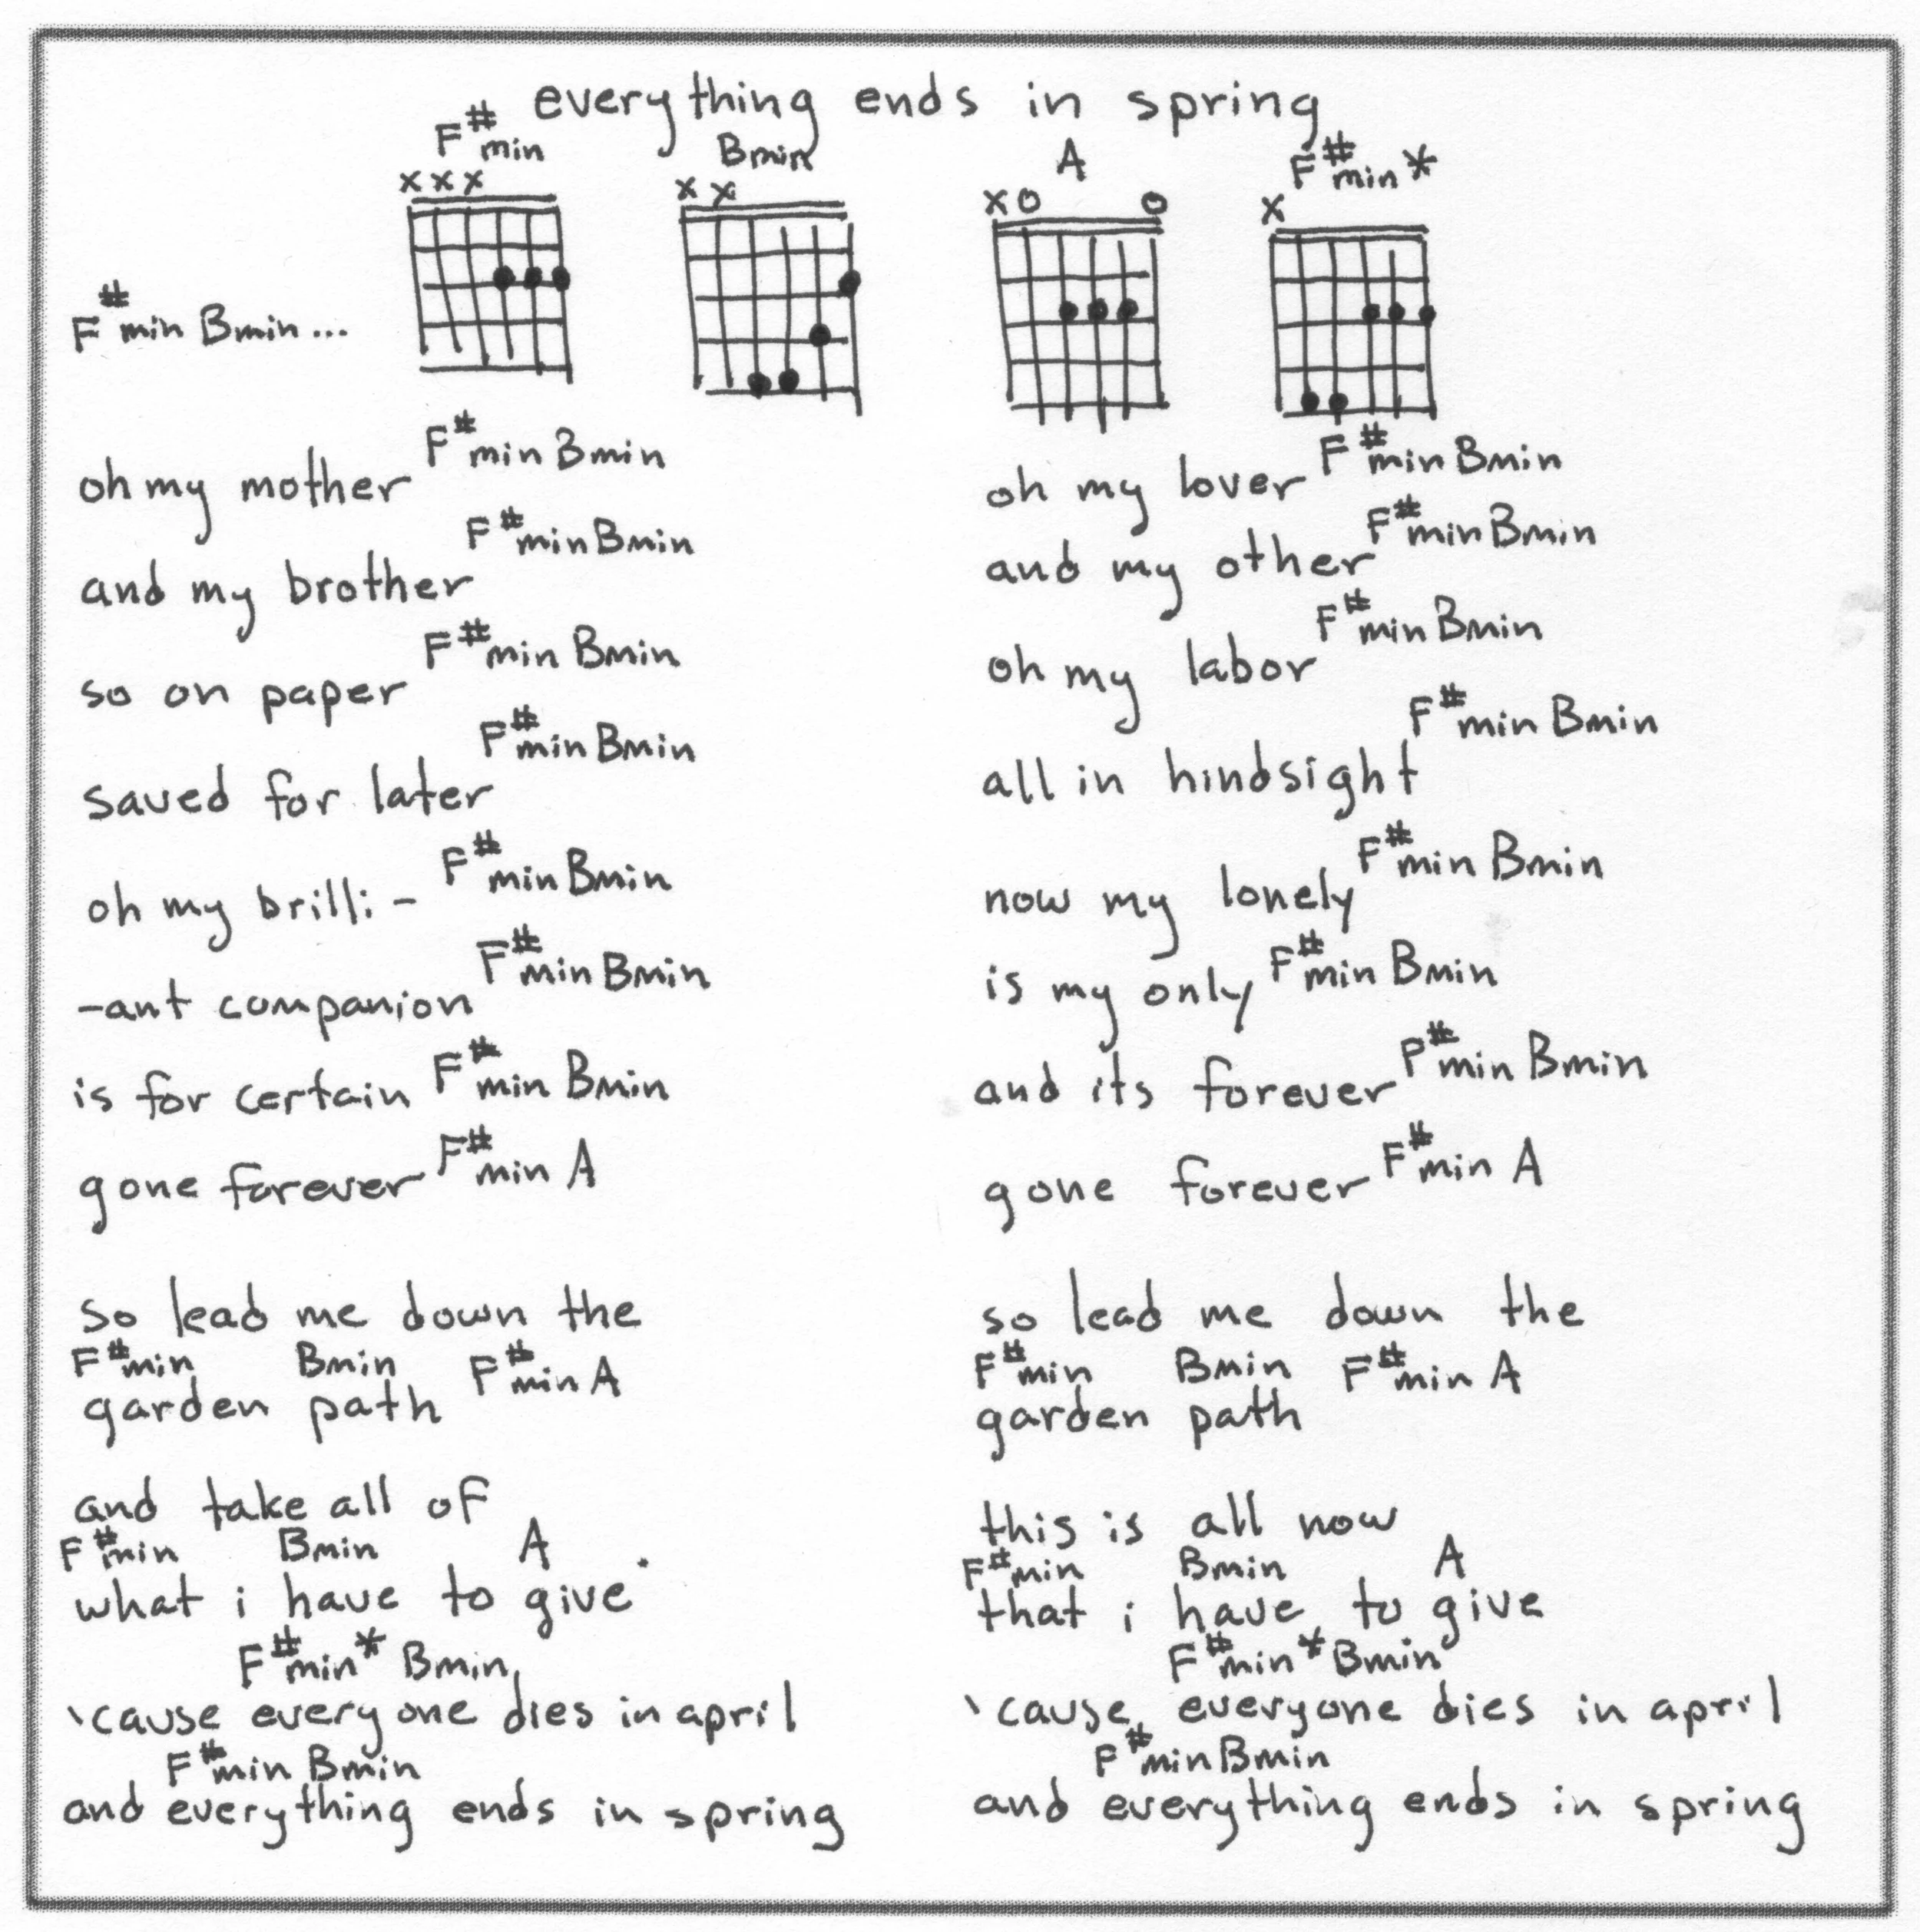 everything ends in spring
F#min Bmin A F#min*
xxx xx xo o x
F#min Bmin...
oh my mother F#min Bmin
and my brother F#min Bmin
so on paper F#min Bmin
saved for later F#min Bmin
oh my brilli- F#min Bmin
-ant companion F#min Bmin
is for certain F#min Bmin
gone forever F#min A
so lead me down the
F#min Bmin F#min A
garden path
and take all of
F#min Bmin A
what i have to give
F#min* Bmin
'cause everyone dies in april
F#min Bmin
and everything ends in spring
oh my lover F#min Bmin
and my other F#min Bmin
oh my labor F#min Bmin
all in hindsight F#min Bmin
now my lonely F#min Bmin
is my only F#min Bmin
and its forever F#min Bmin
gone forever F#min A
so lead me down the
F#min Bmin F#min A
garden path
this is all now
F#min Bmin A
that i have to give
F#min* Bmin
'cause everyone dies in april
F#min Bmin
and everything ends in spring